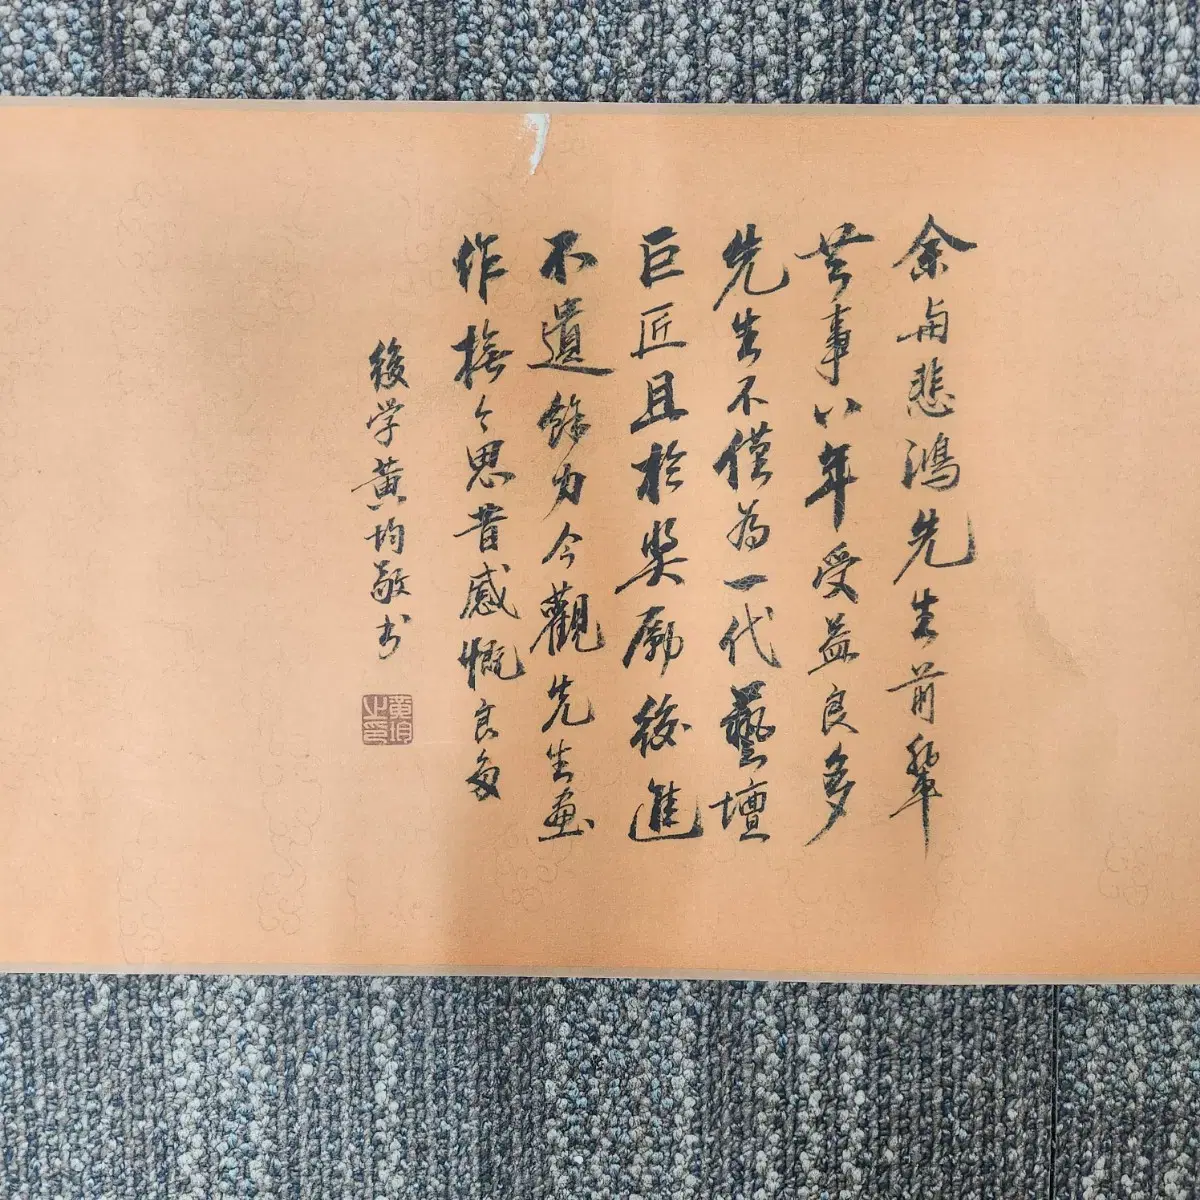 余与悲鴻先生前輩
共事八年受益良多
先生不僅為一代藝壇
巨匠且於奖励後進
不遺餘力今觀先生畫
作撫今思昔感慨良多
後学黄均敬书
黄均之印